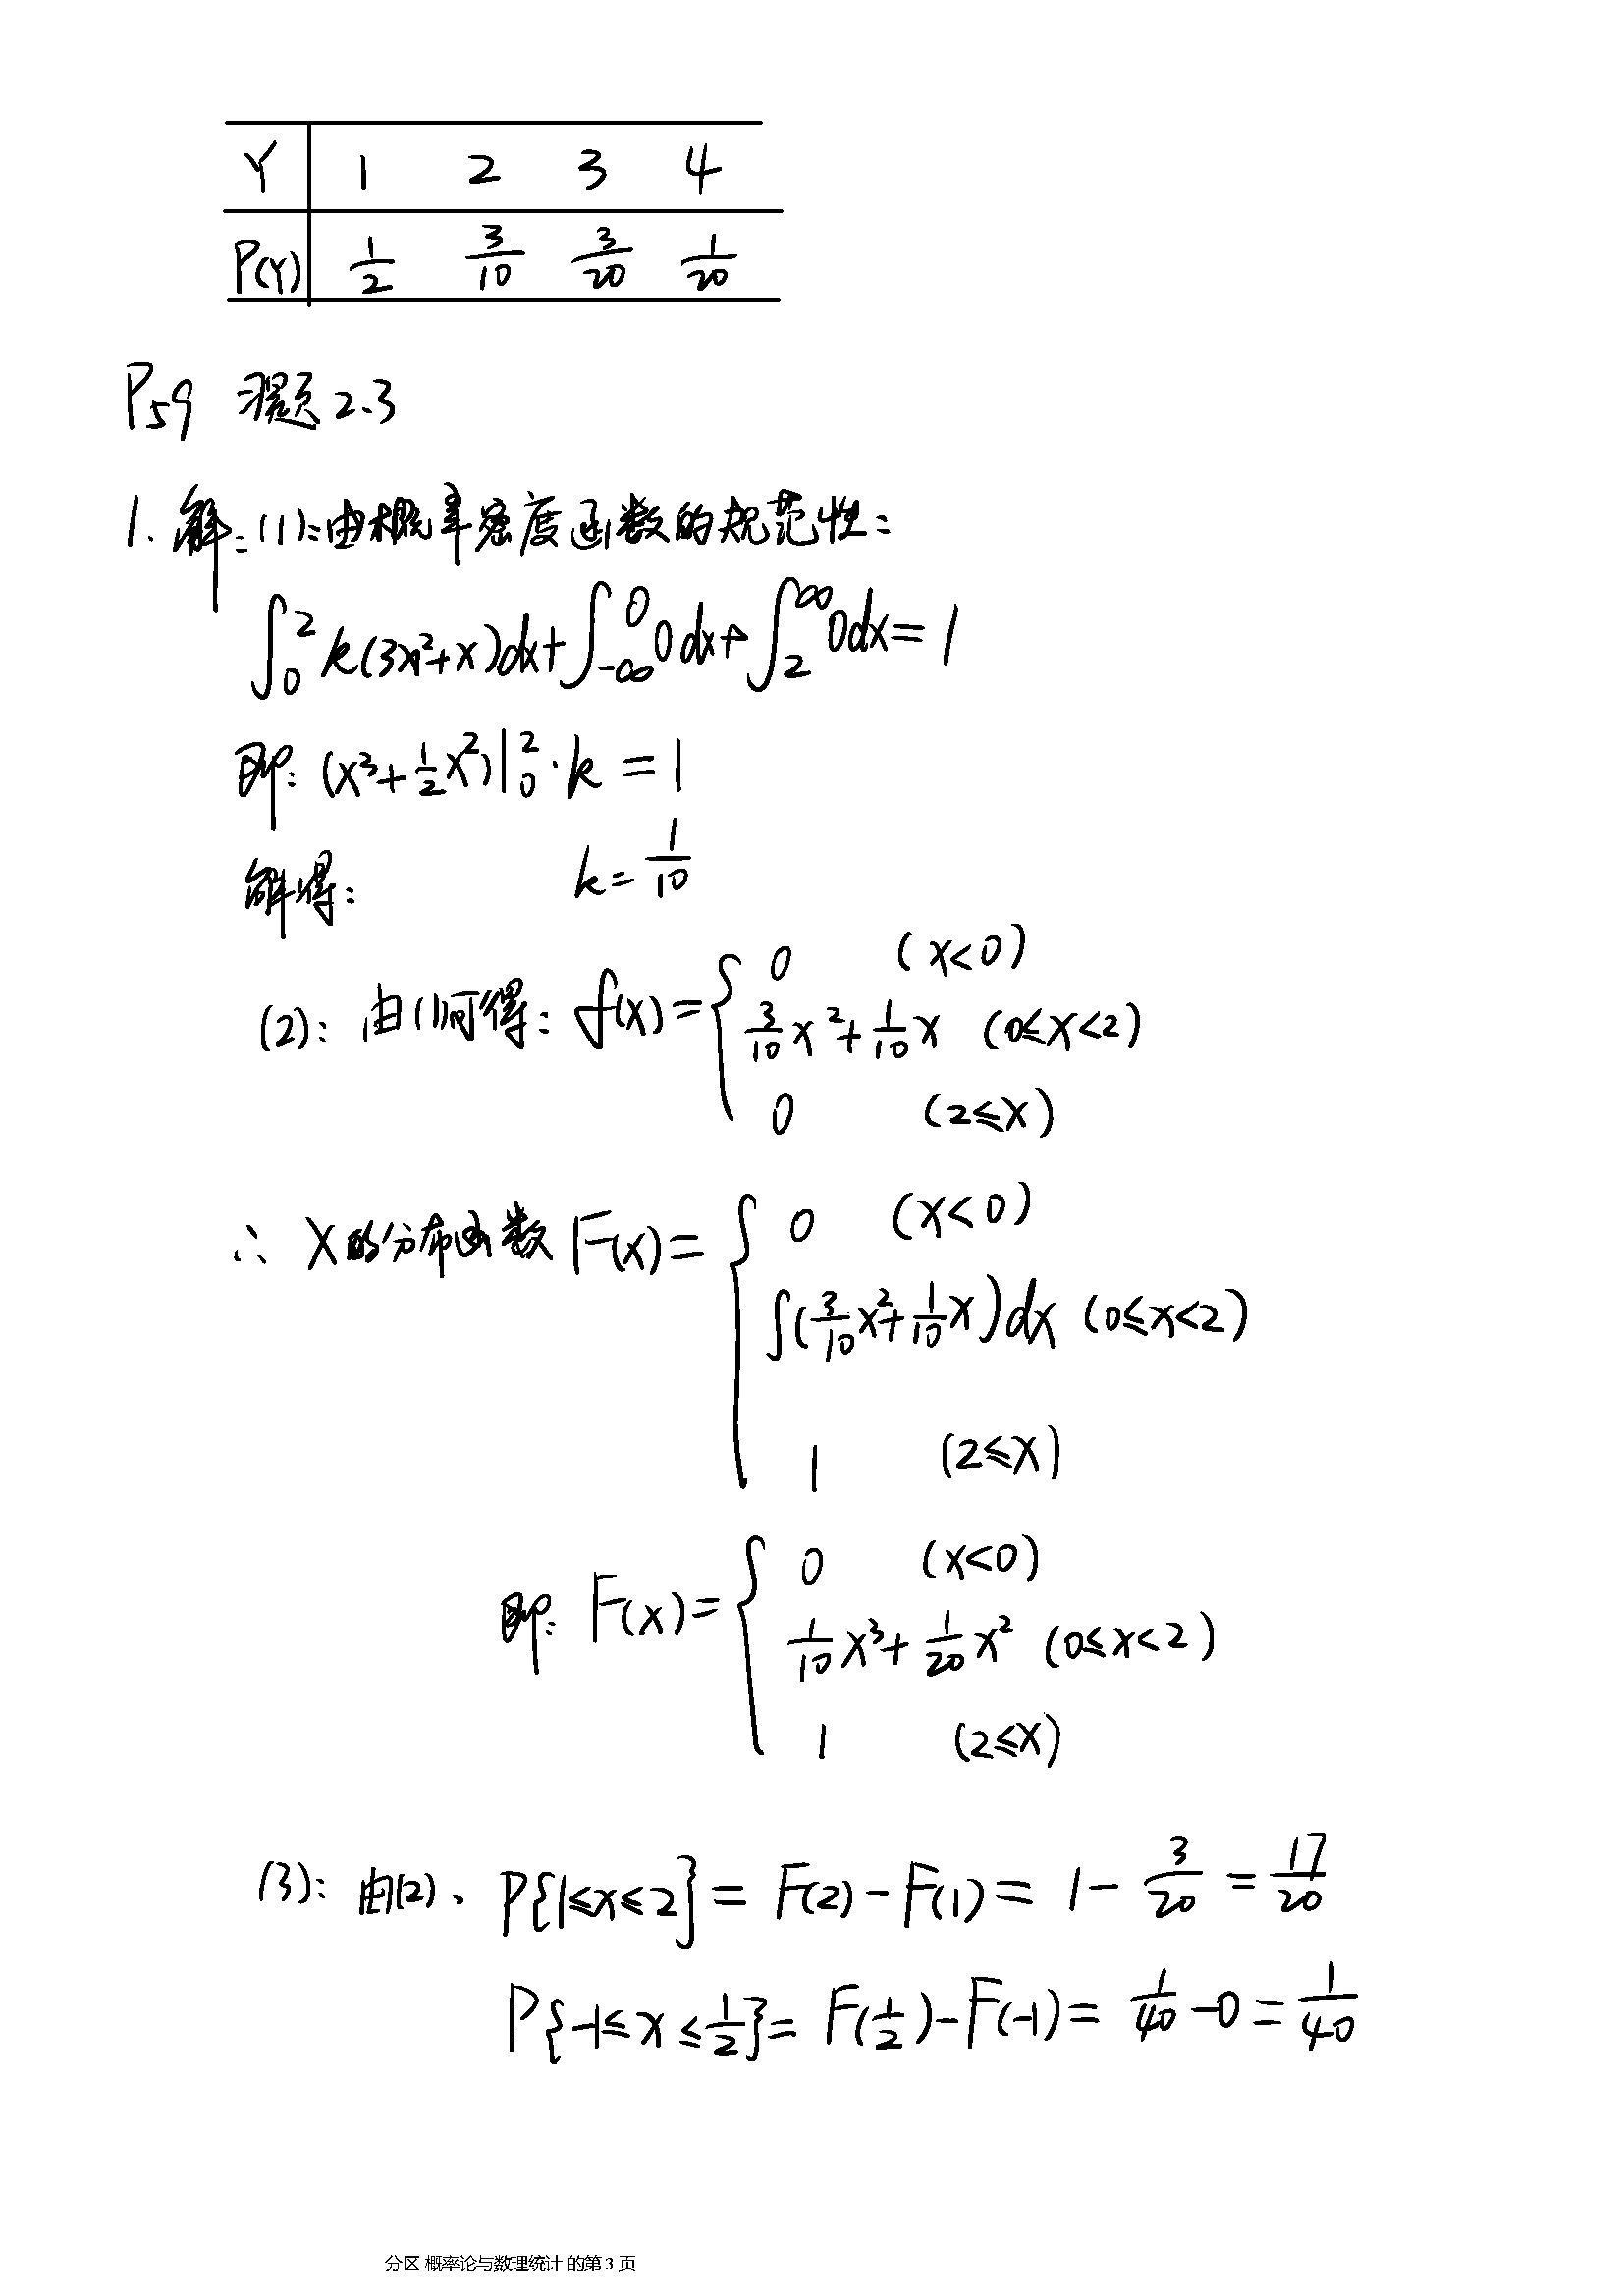 Y 1 2 3 4
P(Y) 1/2 3/10 3/20 1/20
P59 习题2.3
1. 解:(1):由概率密度函数的规范性:
∫₀² k(3x²+x)dx+∫₋∞⁰ 0dx+∫₂^∞ 0dx=1
即:(x³+1/2x²)|₀²·k=1
解得: k=1/10
(2): 由(1)可得:f(x)={ 0 (x<0)
3/10x²+1/10x (0≤x<2)
0 (2≤x)
∴ X的分布函数F(x)={ 0 (x<0)
∫(3/10x²+1/10x)dx (0≤x<2)
1 (2≤x)
即:F(x)={ 0 (x<0)
1/10x³+1/20x² (0≤x<2)
1 (2≤x)
(3): 由(2)、P{1≤x≤2}=F(2)-F(1)=1-3/20=17/20
P{-1≤x≤1/2}=F(1/2)-F(-1)=1/40-0=1/40
分区 概率论与数理统计 的第 3 页